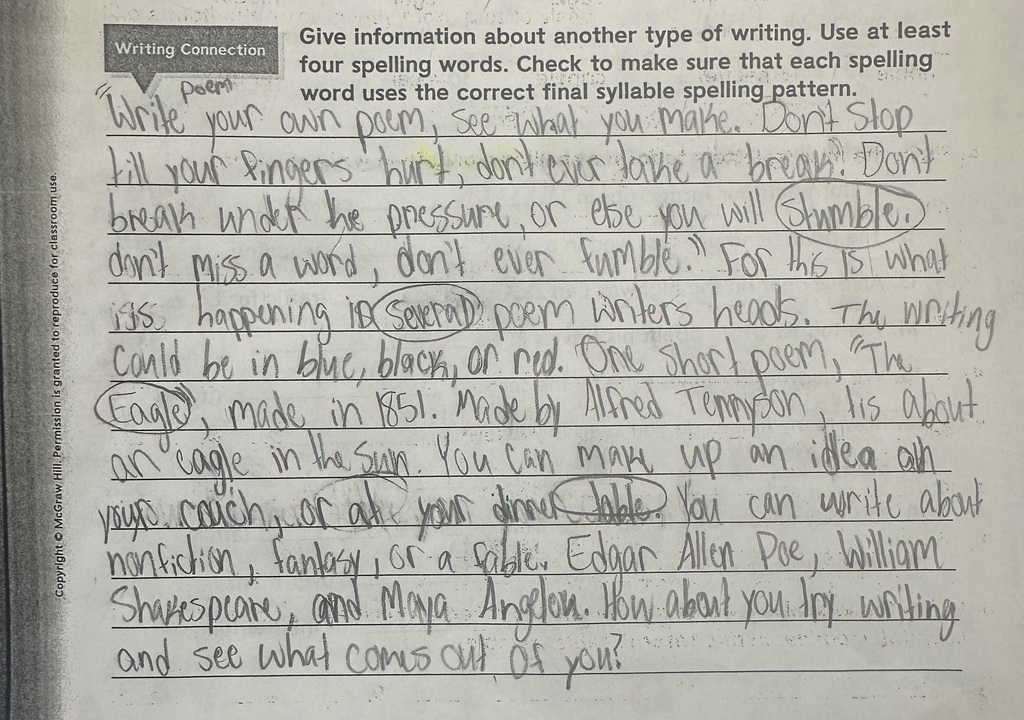 Writing Connection
Give information about another type of writing. Use at least
four spelling words. Check to make sure that each spelling
word uses the correct final syllable spelling pattern.
poem
"Write your own poem, see what you make. Don't Stop
till your fingers hurt, don't ever take a break. Don't
break under the pressure, or else you will Stumble.
don't miss a word, don't ever fumble." For this is what
is happening in several poem writers heads. The writing
could be in blue, black, or red. One short poem, "The
Eagle", made in 1851. Made by Alfred Tennyson, is about
an eagle in the sun. You can make up an idea on
your couch, or at your dinner table. You can write about
nonfiction, fantasy, or a fable. Edgar Allen Poe, William
Shakespeare, and Maya Angelou. How about you try writing
and see what comes out of you?
Copyright © McGraw Hill. Permission is granted to reproduce for classroom use.